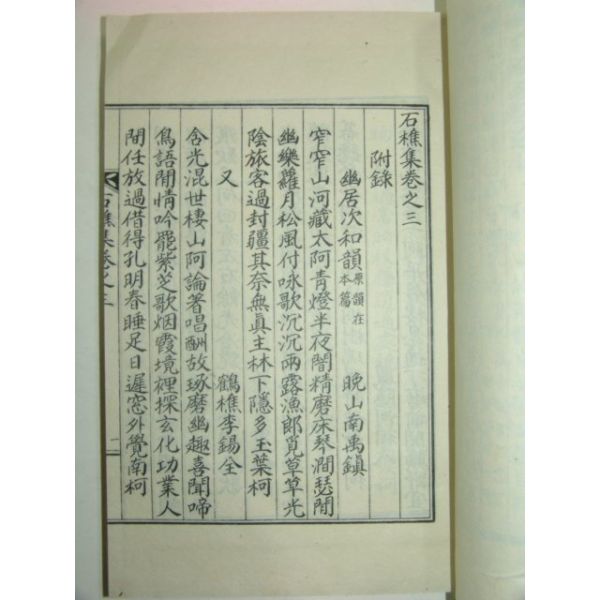 石樵集卷之三
附錄
幽居次和韻 原韻在本篇 晩山南禹鎭
窄窄山河藏太阿青燈半夜闇精磨床琴澗瑟閒
幽樂蘿月松風付咏歌沉沉兩露漁郎覓草草光
陰旅客過封疆其奈無眞主林下隱多玉葉柯
又 鶴樵李錫全
含光混世棲山阿論著唱酬故琢磨幽趣喜聞啼
鳥語閒情吟罷紫芝歌烟霞境裡探玄化功業人
間任放過借得孔明春睡足日遲窓外覺南柯
石樵集卷之三
一